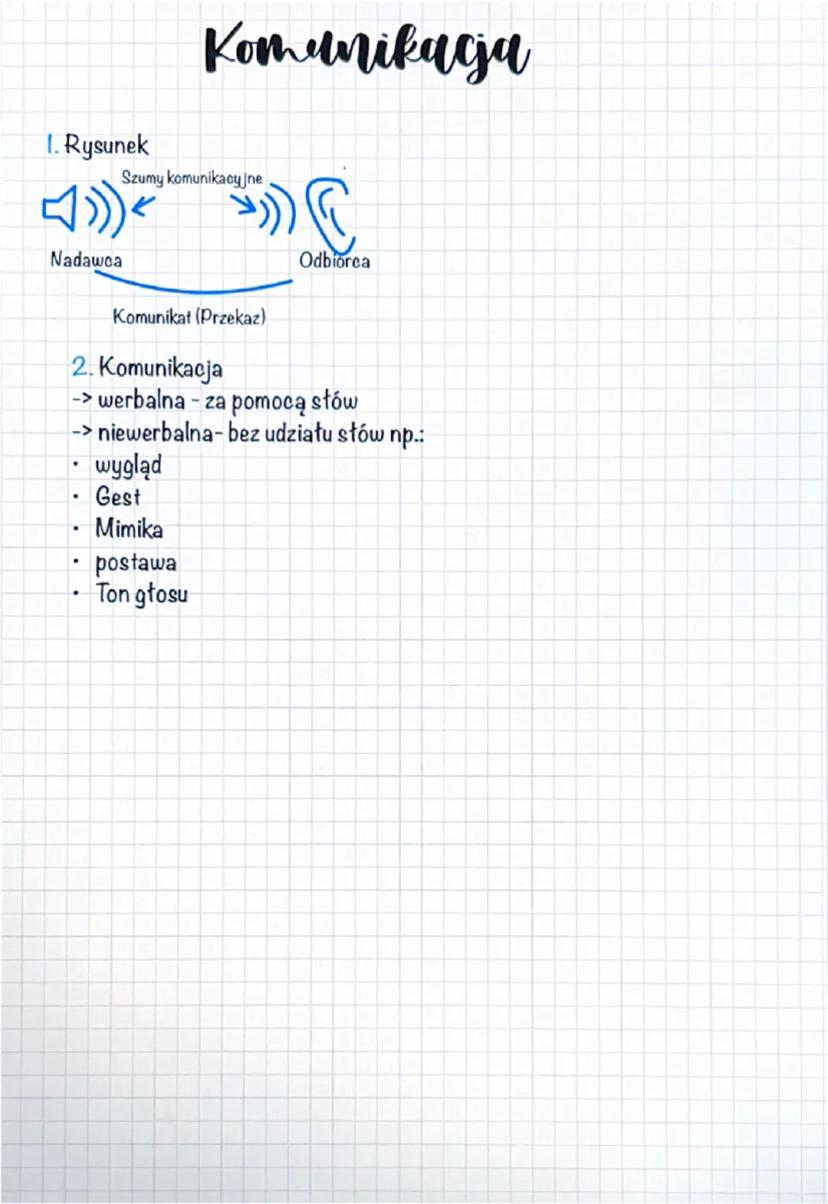 Komunikacja
1. Rysunek
Szumy komunikacyjne
Nadawca
Odbiorca
Komunikat (Przekaz)
2. Komunikacja
-> werbalna - za pomocą słów
-> niewerbalna- bez udziału słów np.:
• wygląd
• Gest
• Mimika
• postawa
• Ton głosu